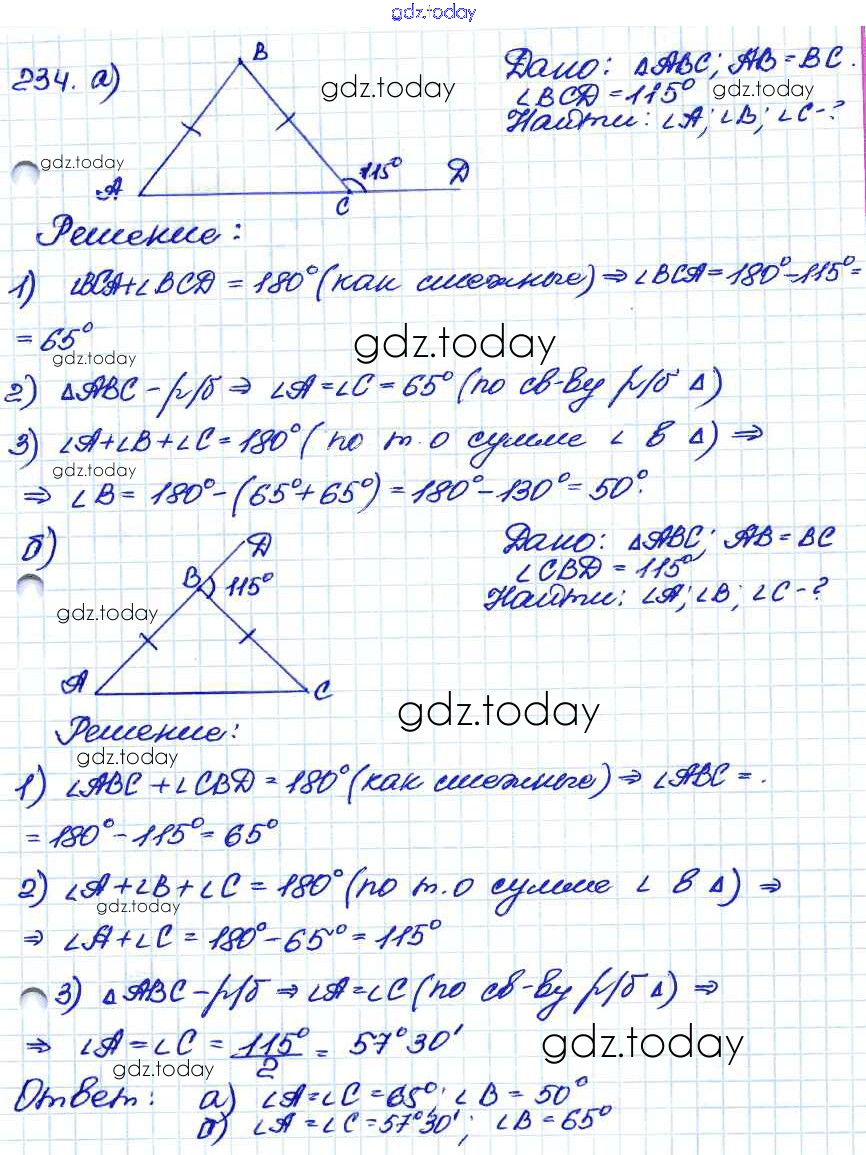 gdz.today
234. а)
B
Дано: ΔABC; AB = BC.
gdz.today
∠BCD = 115°
gdz.today
Найти: ∠A; ∠B; ∠C - ?
gdz.today
115°
D
A
C
Решение:
1) ∠BCA + ∠BCD = 180° (как смежные) ⇒ ∠BCA = 180° - 115° =
= 65°
gdz.today
gdz.today
2) ΔABC - р/б ⇒ ∠A = ∠C = 65° (по св-ву р/б Δ)
3) ∠A + ∠B + ∠C = 180° (по т. о сумме ∠ в Δ) ⇒
gdz.today
⇒ ∠B = 180° - (65° + 65°) = 180° - 130° = 50°.
б)
D
Дано: ΔABC; AB = BC
B
115°
∠CBD = 115°
Найти: ∠A; ∠B; ∠C - ?
gdz.today
A
C
gdz.today
Решение:
gdz.today
1) ∠ABC + ∠CBD = 180° (как смежные) ⇒ ∠ABC = .
= 180° - 115° = 65°
2) ∠A + ∠B + ∠C = 180° (по т. о сумме ∠ в Δ) ⇒
gdz.today
⇒ ∠A + ∠C = 180° - 65° = 115°
3) ΔABC - р/б ⇒ ∠A = ∠C (по св-ву р/б Δ) ⇒
⇒ ∠A = ∠C = 115°/2 = 57°30'
gdz.today
gdz.today
Ответ: а) ∠A = ∠C = 65°; ∠B = 50°
б) ∠A = ∠C = 57°30'; ∠B = 65°